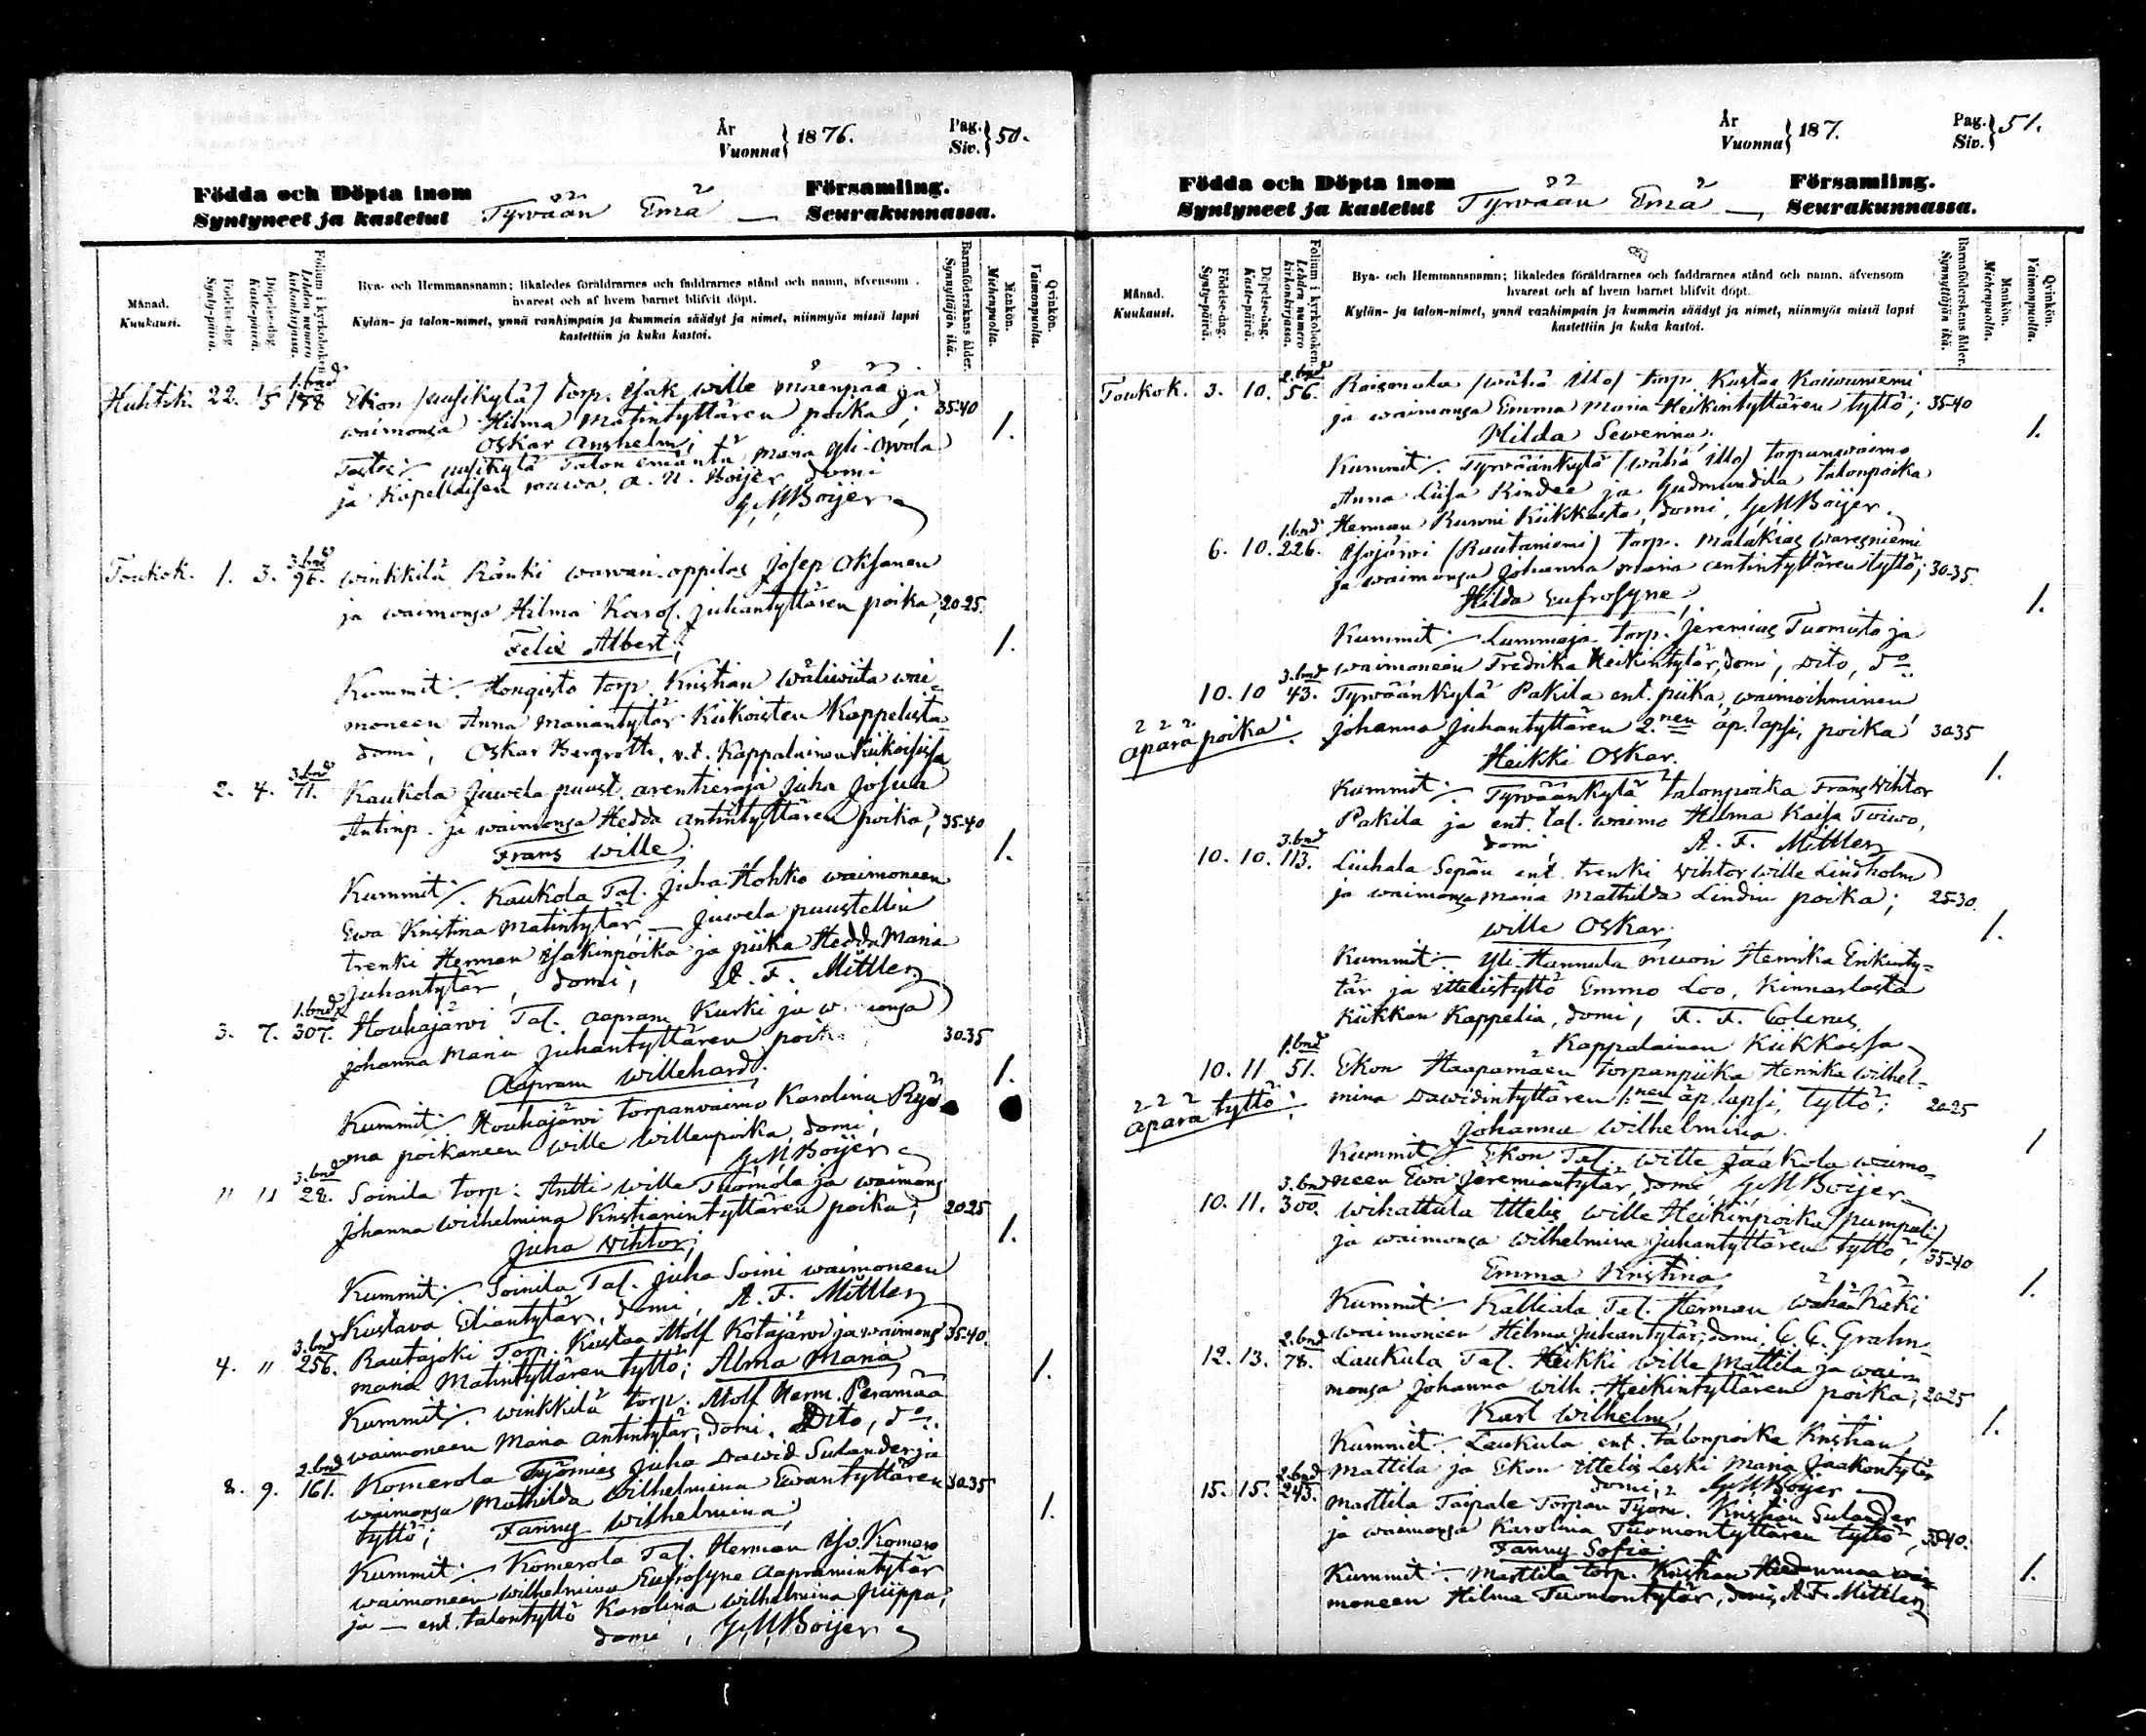 År
Vuonna } 1876.
Pag.
Siv. } 50.
Födda och Döpta inom
Syntyneet ja kastetut Tyrvään Emä — Församling.
Seurakunnassa.
Månad.
Kuukausi.
Födelse-dag.
Synty-päivä.
Döpelse-dag.
Kaste-päivä.
Folium i kyrkoboken.
Lehden numero kirkonkirjassa.
Bya- och Hemmansnamn; likaledes föräldrarnes och faddrarnes stånd och namn, äfvensom
hvarest och af hvem barnet blifvit döpt.
Kylän- ja talon-nimet, ynnä vanhimpain ja kummein säädyt ja nimet, niinmyös missä lapsi
kastettiin ja kuka kastoi.
Barnaföderskans ålder.
Synnyttäjän ikä.
Mankön.
Miehenpuolta.
Qvinkön.
Vaimonpuolta.
1.bnd
Huhtik. 22. 15 188 Ekon (uusikylä) torp. Isak Wille Mäenpää ja
waimonsa Hilma Matintyttären poika; 35-40
Oskar Anshelm; 1.
uusikylä Talon emäntä Maria Yli-Owola
ja Kapellaisen rouwa A. U. Boijer domi
G. M. Boijer
3.bnd
Toukok. 1. 3. 96. Winkkilä Ränki wärwäri-oppilas Josep Oksanen
ja waimonsa Hilma Karol. Juhantyttären poika; 20-25.
Felix Albert; 1.
Kummit: Hongisto torp. Kristian Wäliwiita wai-
moneen Anna Mariantytär Kiikoisten Kappelista
domi, Oskar Bergroth, v.t. Kappalainen Kiikoisissa
3.bnd
2. 4. 71. Kaukola Juwela puust. arentieraja Juha Josua
Antinp. ja waimonsa Hedda Antintyttären poika; 35-40
Frans Wille 1.
Kummit: Kaukola Tal. Juha Hohko waimoneen
Ewa Kristina Matintytär — Juwela puustellin
trenki Herman Isakinpoika ja piika Hedda Maria
Juhantytär, domi, A. F. Mittler
1.bnd
3. 7. 307. Houhajärwi Tal. Aapram Kurki ja w..monsa
Johanna Maria Juhantyttären poika 30-35
Aapram Willehard. 1.
Kummit: Houhajärwi torpanwaimo Karolina
poikaneen Wille Willenpoika, domi,
G. M. Boijer
3.bnd
" 11 28. Soinila torp. Antti Wille Tuomola ja waimons
Johanna Wilhelmina Kristianintyttären poika; 20-25
Juha Wihtor; 1.
Kummit: Soinila Tal. Juha Soini waimoneen
Kustava Eliantytär, domi, A. F. Mittler
3.bnd
4. " 256. Rautajoki Torp. Kustaa Adolf Kotajärwi ja waimons 35-40.
Maria Matintyttären tyttö; Alma Maria 1.
Kummit: Winkkilä torp. Adolf Herm. Perämaa
waimoneen Maria Antintytär, domi. Dito, do.
2.bnd
8. 9. 161. Komerola Työmies Juha Dawid Sulander ja
waimonsa Mathilda Wilhelmina Ewantyttären 30-35
tyttö; Fanny Wilhelmina; 1.
Kummit: Komerola Tal. Herman Iso-Komero
waimoneen Wilhelmina Eufrosyne Aapramintytär
ja — ent. talontyttö Karolina Wilhelmina Piippa,
domi, G. M. Boijer
År
Vuonna } 187.
Pag.
Siv. } 51.
Födda och Döpta inom
Syntyneet ja kastetut Tyrvään Emä — Församling.
Seurakunnassa.
Månad.
Kuukausi.
Födelse-dag.
Synty-päivä.
Döpelse-dag.
Kaste-päivä.
Folium i kyrkoboken.
Lehden numero kirkonkirjassa.
Bya- och Hemmansnamn; likaledes föräldrarnes och faddrarnes stånd och namn, äfvensom
hvarest och af hvem barnet blifvit döpt.
Kylän- ja talon-nimet, ynnä vanhimpain ja kummein säädyt ja nimet, niinmyös missä lapsi
kastettiin ja kuka kastoi.
Barnaföderskans ålder.
Synnyttäjän ikä.
Mankön.
Miehenpuolta.
Qvinkön.
Vaimonpuolta.
2.bnd
Toukok. 3. 10. 56. Roismala (wähä Illo) torp. Kustaa Koiwuniemi
ja waimonsa Emma Maria Heikintyttären tyttö; 35-40
Hilda Sewerina. 1.
Kummit: Tyrwäänkylä (wähä Illo) torpanwaimo
Anna Liisa Rindee ja Gudmundila talonpoika
Herman Ruuni Kiikkasta, domi, G. M. Boijer
1.bnd
6. 10. 226. Isojärwi (Rautaniemi) torp. Malakias Waresniemi
ja waimonsa Johanna Maria Antintyttären tyttö; 30-35.
Hilda Eufrosyne, 1.
Kummit: Lummaja torp. Jeremias Tuomisto ja
waimoneen Fredrika Heikintytär, domi, Dito, do
3.bnd
10. 10 43. Tyrwäänkylä Pakila ent. piika, waimoihminen
äpärä poika: Johanna Juhantyttären 2.nen äp. lapsi, poika! 30-35
Heikki Oskar. 1.
Kummit: Tyrwäänkylä talonpoika Frans Wihtor
Pakila ja ent. tal. waimo Hilma Kaisa Toiwo,
domi A. F. Mittler
3.bnd
10. 10. 113. Liuhala Sepän ent. trenki Wihtor Wille Lindholm
ja waimonsa Maria Mathilda Lindin poika; 25-30.
Wille Oskar. 1.
Kummit: Yli-Hannula muori Henrika Erikinty-
tär ja ittelistyttö Emma Loo, Kinnarlasta
Kiikkan Kappelia, domi, F. F. Colerus,
Kappalainen Kiikkassa
1.bnd
10. 11 51. Ekon Haapamäen torpanpiika Henrika Wilhel-
äpärä tyttö: mina Dawidintyttären 1:nen äp. lapsi, tyttö; 20-25
Johanna Wilhelmina. 1
Kummit: Ekon Tal. Wille Jaakola waimo-
neen Ewa Jeremiantytär, domi G. M. Boijer
3.bnd
10. 11. 300. Wihattula ittelis Wille Heikinpoika (pumpuli)
ja waimonsa Wilhelmina Juhantyttären tyttö, 35-40
Emma Kristina 1.
Kummit: Kalliala Tal. Herman Wähä-Käki
waimoneen Hilma Juhantytär, domi, C. C. Grahn
2.bnd
12. 13. 78. Laukula Tal. Heikki Wille Mattila ja wai-
monsa Johanna Wilh. Heikintyttären poika; 20-25
Karl Wilhelm, 1.
Kummit: Laukula ent. talonpoika Kristian
Mattila ja Ekon ittelis Leski Maria Jaakontytär
domi, G. M. Boijer
2.bnd
15. 15. 243. Marttila Taipale Torpan Työm. Kristian Sulander
ja waimonsa Karolina Tuomontyttären tyttö, 35-40.
Fanny Sofia. 1.
Kummit: Marttila torp. Kristian Hiedenmaa wai-
moneen Hilma Tuomontytär, domi, A. F. Mittler